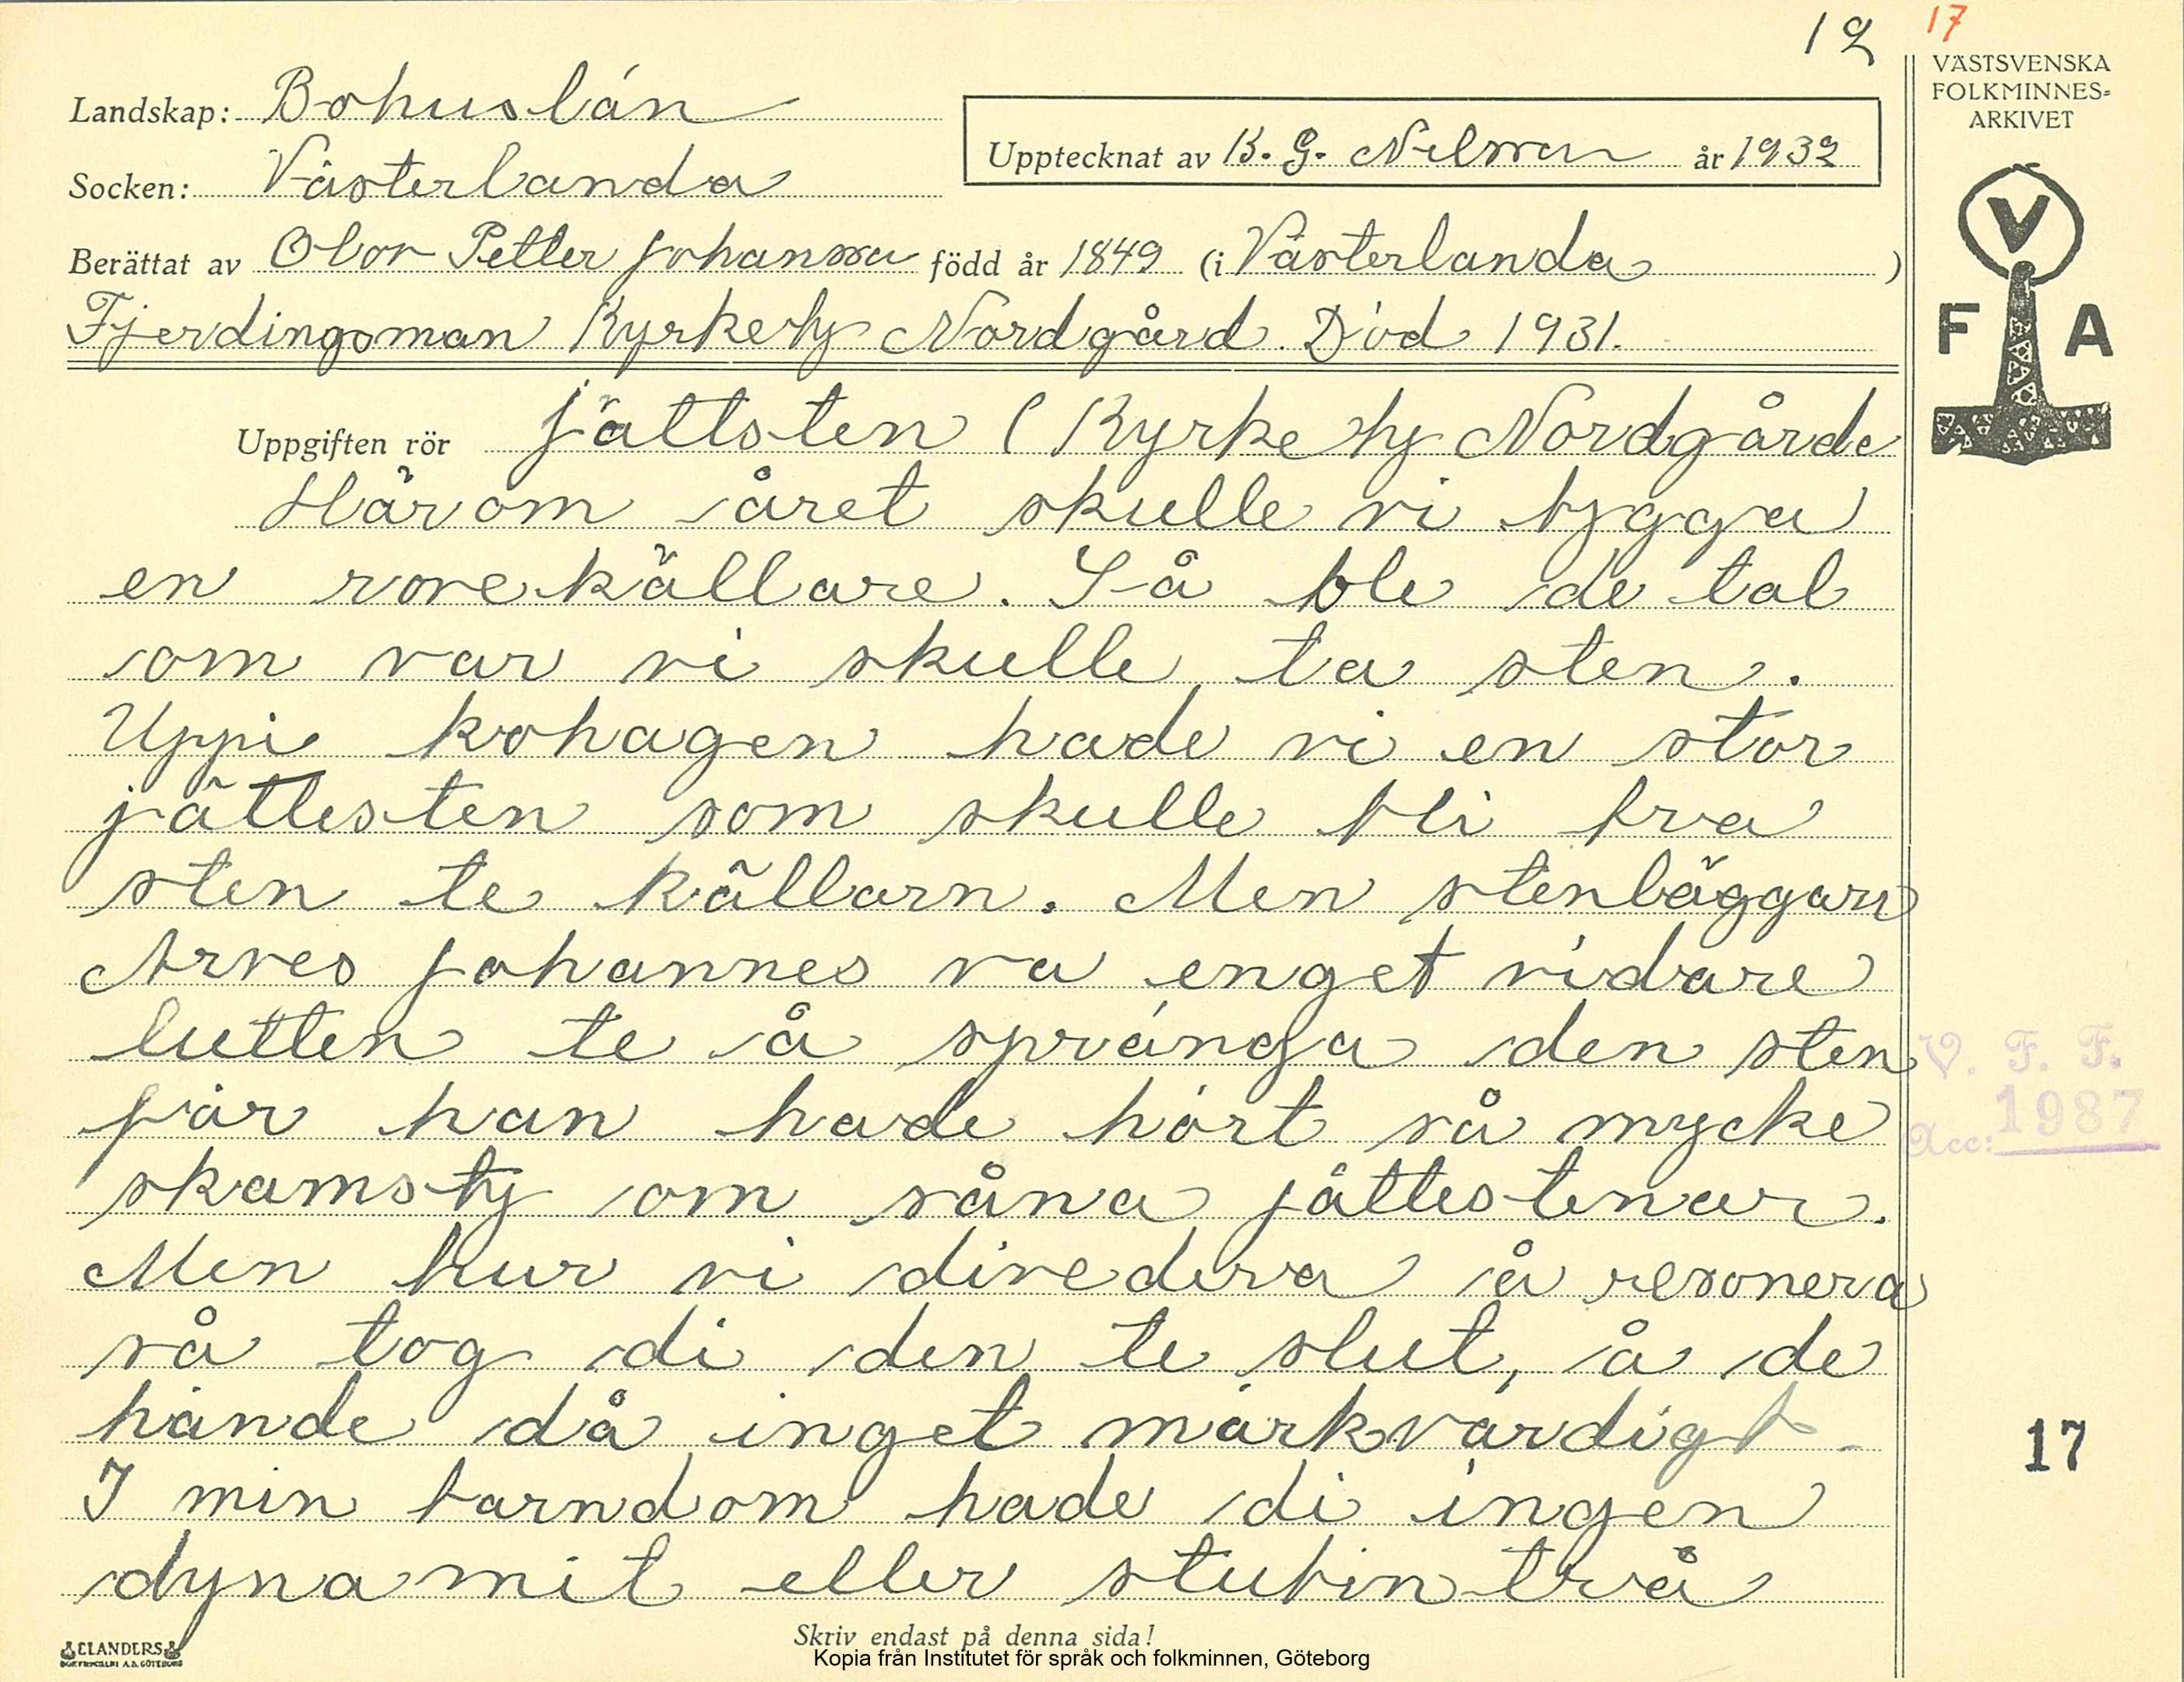 12 17
VÄSTSVENSKA
FOLKMINNES-
ARKIVET
Landskap: Bohuslän
Upptecknat av K. G. Nilsson år 1932
Socken: Västerlanda
Berättat av Olof Petter Johansson född år 1849 (i Västerlanda )
Fjerdingsman Kyrkeby Nordgård. Död 1931.
V
F A
Uppgiften rör Jättsten (Kyrkeby Nordgårde
Härom året skulle vi bygga
en rovekällare. Så ble de tal
om var vi skulle ta sten.
Uppi kohagen hade vi en stor
jättesten som skulle bli bra
sten te källarn. Men stenläggarn
Arves Johannes va enget vidare
lutten te å spränga den sten
för han hade hört så mycke
skamsty om såna jättestenar.
Men hur vi divedera å resonera
så tog di den te slut, å de
hände då inget märkvärdigt.
I min barndom hade di ingen
dynamit eller stubintrå
V. F. F.
Acc: 1987
17
ELANDERS
BOKTRYCKERI A.B. GÖTEBORG
Skriv endast på denna sida!
Kopia från Institutet för språk och folkminnen, Göteborg